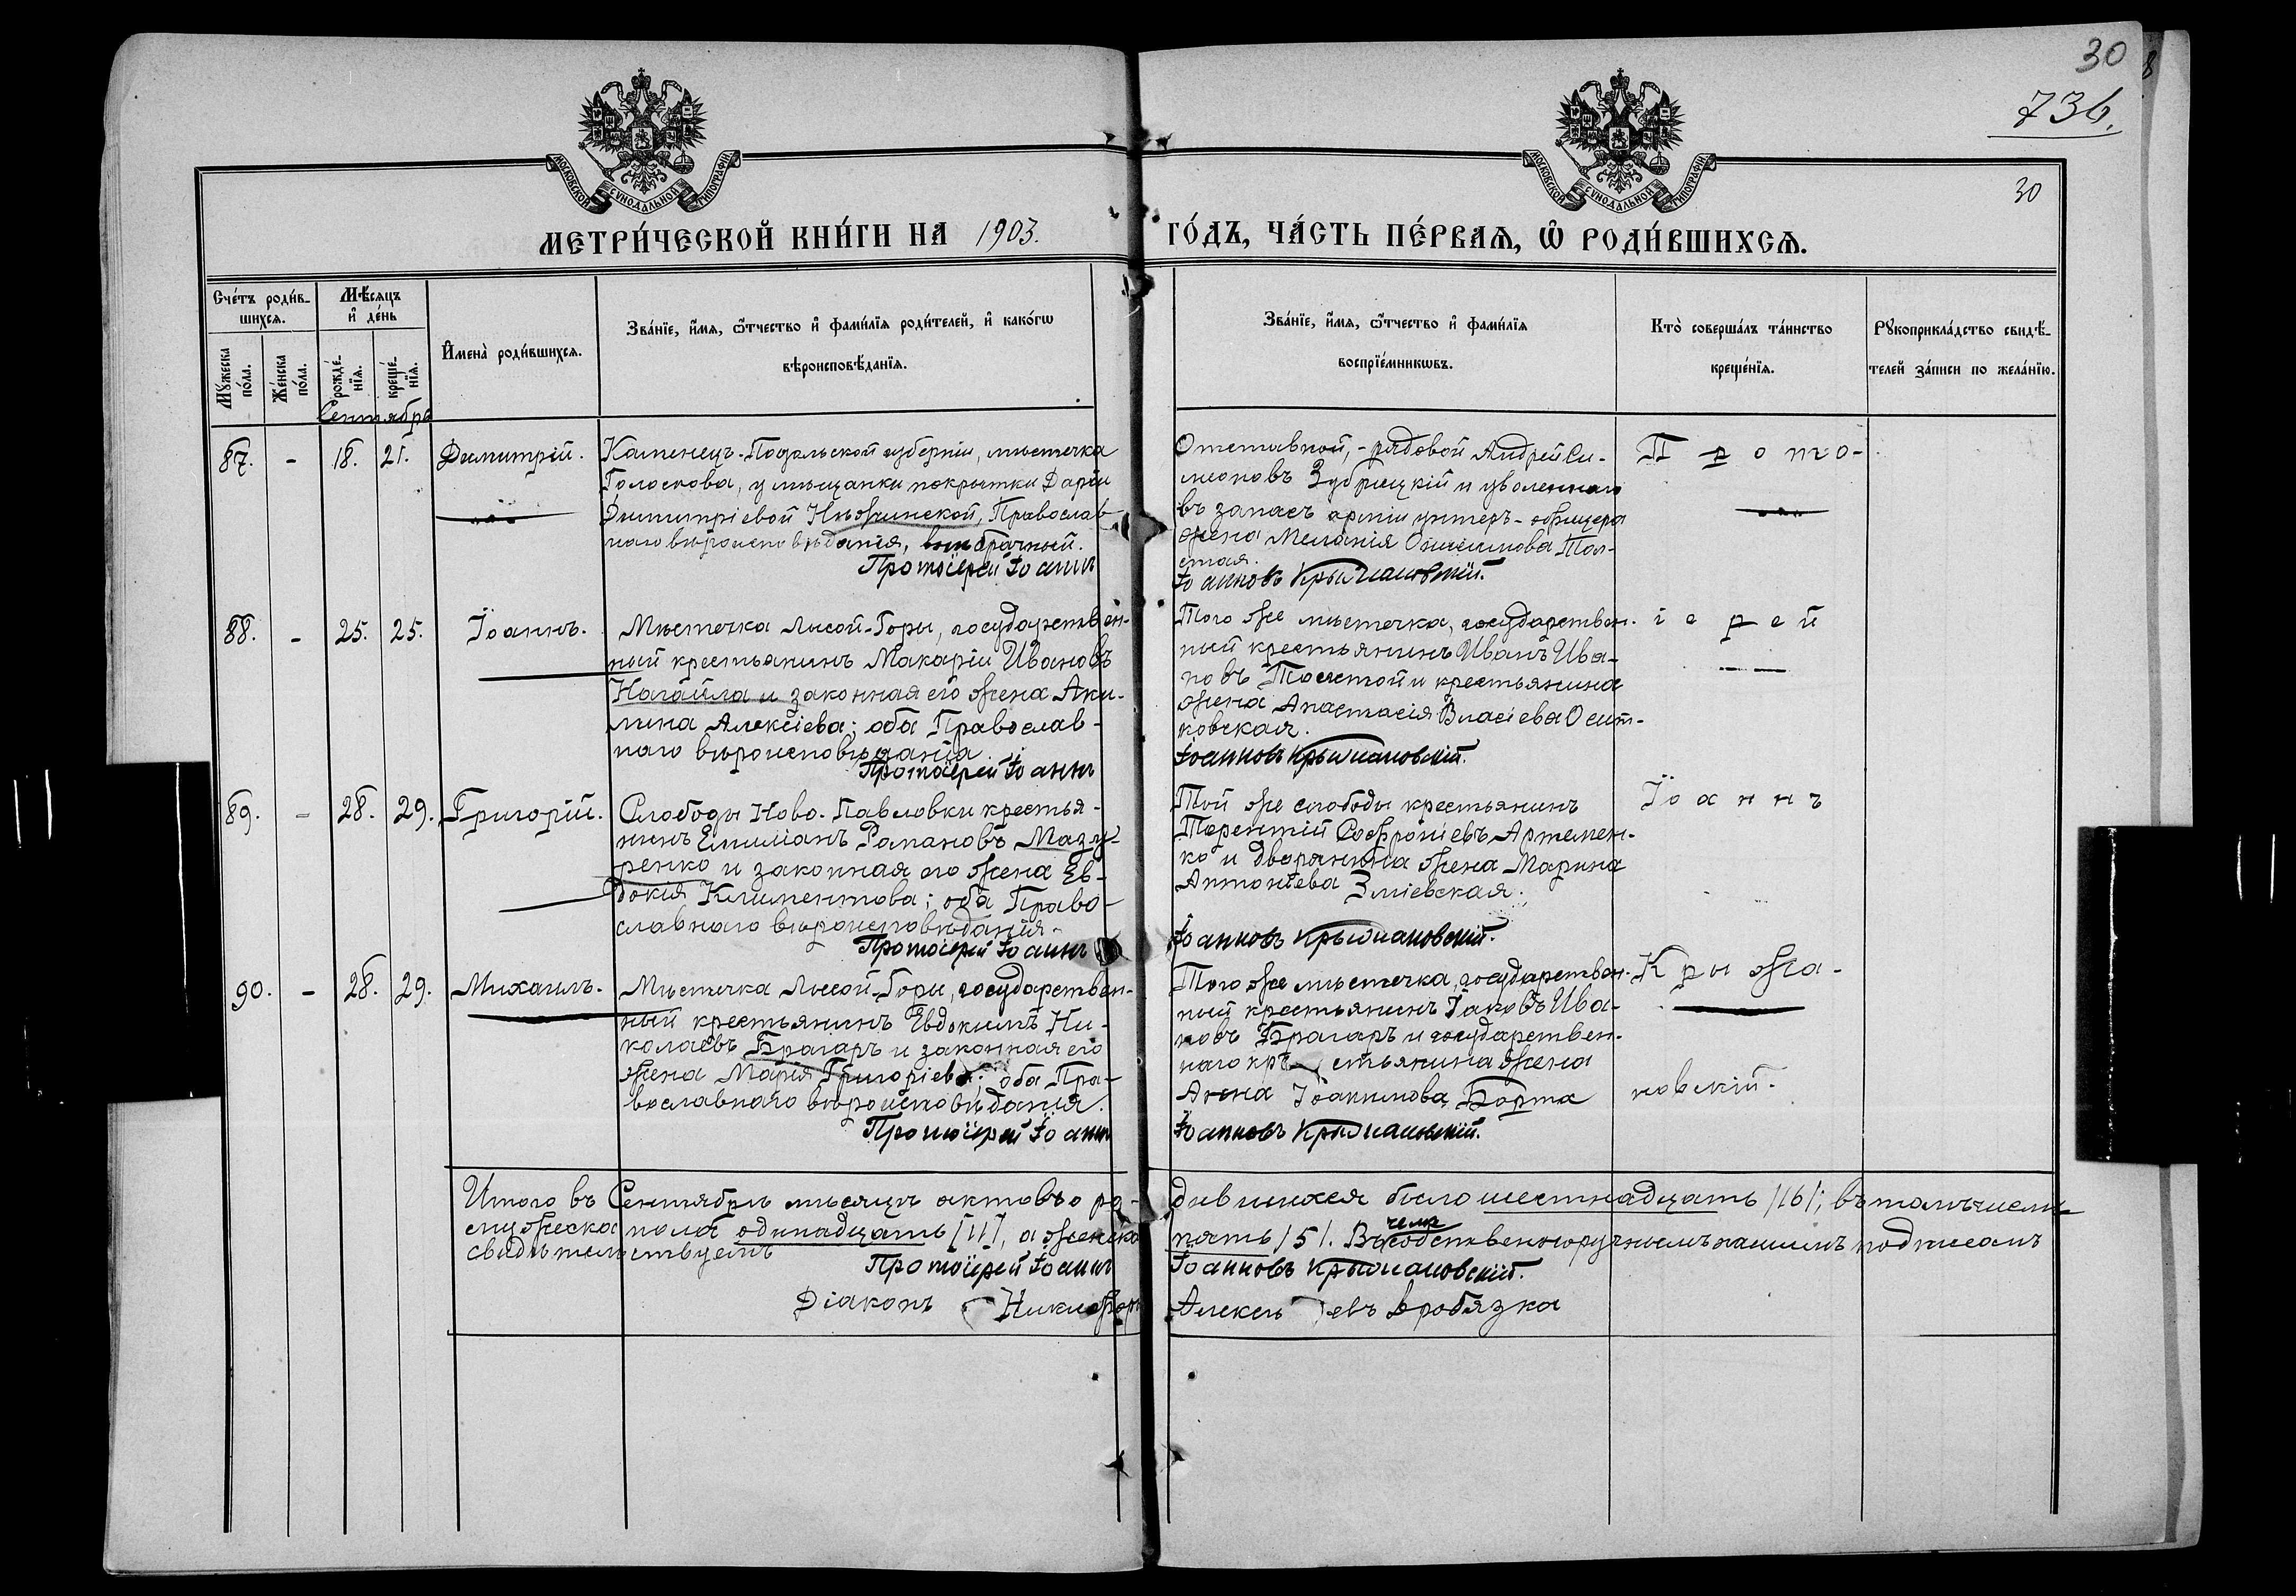 30
8
736.
30
МОСКОВСКОЙ СУНОДАЛЬНОЙ ТИПОГРАФІИ
МОСКОВСКОЙ СУНОДАЛЬНОЙ ТИПОГРАФІИ
МЕТРИ́ЧЕСКОЙ КНИ́ГИ НА 1903. ГО́ДЪ, ЧА́СТЬ ПЕ́РВАѦ, Ѡ҆ РОДИ́ВШИХСѦ.
Сче́тъ роди́в-
шихсѧ.
Мꙋ́жеска по́ла.
Же́нска по́ла.
Мѣ́сѧцъ и҆ де́нь
рожде́-нїѧ.
креще́-нїѧ.
И҆мена̀ роди́вшихсѧ.
Зва́нїе, и҆́мѧ, ѻ҆́тчество и҆ фами́лїѧ роди́телей, и҆ како́гѡ
вѣроисповѣ́данїѧ.
Зва́нїе, и҆́мѧ, ѻ҆́тчество и҆ фами́лїѧ
воспрїе́мникѡвъ.
Кто̀ соверша́лъ та́инство
креще́нїѧ.
Рꙋкоприкла́дство свидѣ́-
телей за́писи по жела́нїю.
Сентябрь
87. - 18. 21. Димитрій.
Каменецъ-Подольской губерніи, мѣстечка
Голоскова, у мѣщанки покрытки Даріи
Димитріевой Нѣжинской, Православ-
наго вѣроисповѣданія, внѣбрачный.
Протоіерей Іоаннъ
Отставной, - рядовой Андрей Си-
меоновъ Зубрицкій и уволеннаго
въ запасъ арміи унтеръ-офицера
жена Меланія Онисимова Тол-
стая.
Іоанновъ Крыжановскій.
П р о т о -
88. - 25. 25. Іоаннъ.
Мѣстечка Лысой-Горы, государствен-
ный крестьянинъ Макарій Ивановъ
Нагайла и законная его жена Аки-
лина Алексіева; оба Православ-
наго вѣроисповѣданія.
Протоіерей Іоаннъ
Того же мѣстечка, государствен-
ный крестьянинъ Иванъ Ива-
новъ Толстой и крестьянина
жена Анастасія Власіева Осит-
ковская.
Іоанновъ Крыжановскій.
і е р е й
89. - 28. 29. Григорій.
Слободы Ново-Павловки крестья-
нинъ Емиліанъ Романовъ Мазу-
ренко и законная его жена Ев-
докія Климентова; оба Право-
славнаго вѣроисповѣданія.
Протоіерей Іоаннъ
Той же слободы крестьянинъ
Терентій Софроніевъ Артемен-
ко и дворянина жена Марина
Антоніева Зміевская.
Іоанновъ Крыжановскій.
І о а н н ъ
90. - 28. 29. Михаилъ.
Мѣстечка Лысой-Горы, государствен-
ный крестьянинъ Евдокимъ Ни-
колаевъ Брагаръ и законная его
жена Марія Григоріева; оба Пра-
вославнаго вѣроисповѣданія.
Протоіерей Іоаннъ
Того же мѣстечка, государствен-
ный крестьянинъ Іаковъ Ива-
новъ Брагаръ и государствен-
наго крестьянина жена
Анна Іоакимова Борта
Іоанновъ Крыжановскій.
К р ы ж а -
новскій.
Итого въ Сентябрѣ мѣсяцѣ актовъ о родившихся было шестнадцать /16/; въ томъ числѣ
мужеска пола одинадцать [11], а женска пять /5/. Въ чемъ собственноручнымъ нашимъ подписомъ
свидѣтельствуемъ
Протоіерей Іоаннъ Іоанновъ Крыжановскій.
Діаконъ Никифоръ Алексѣевъ Кробязка